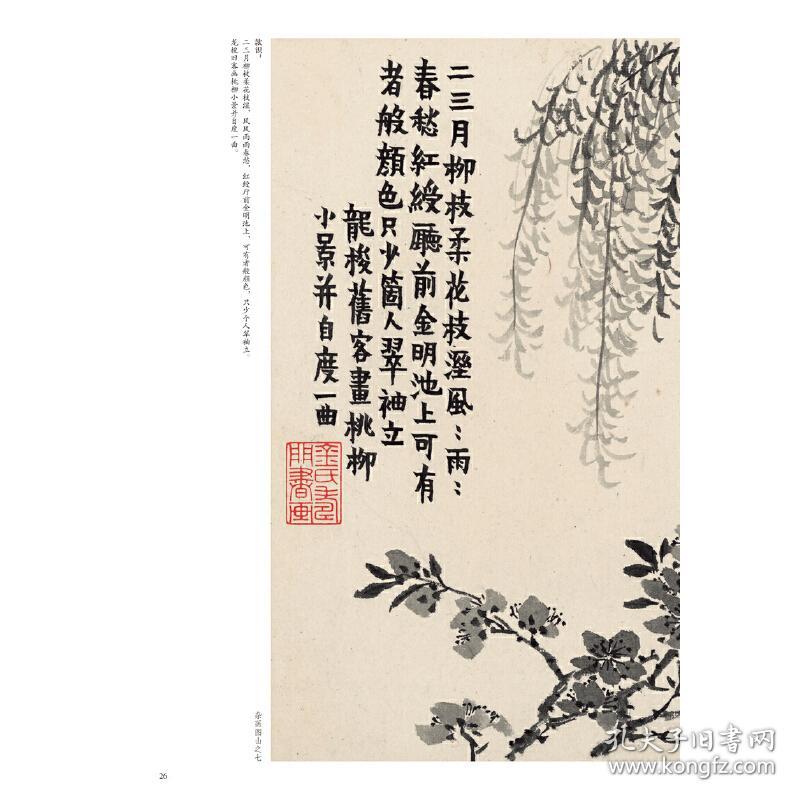 二三月柳枝柔花枝溼風〻雨〻
春愁紅綬廳前金明池上可有
者般顏色只少箇人翠袖立
龍梭舊客畫桃柳
小景并自度一曲
金氏壽
門書画
款识：
二三月柳枝柔花枝湿，风风雨雨春愁，红绶厅前金明池上，可有者般颜色，只少个人翠袖立。
龙梭旧客画桃柳小景并自度一曲。
杂画图册之七
26
孔夫子旧书网
www.kongfz.com